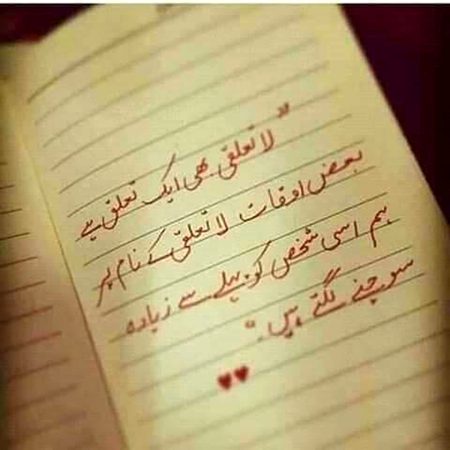 "لا تعلقی بھی ایک تعلق ہے
بعض اوقات لا تعلقی کے نام پر
ہم اسی شخص کو پہلے سے زیادہ
سوچنے لگتے ہیں."
♥♥